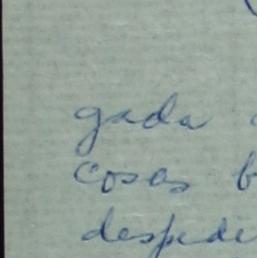 gada
cosas b
despede